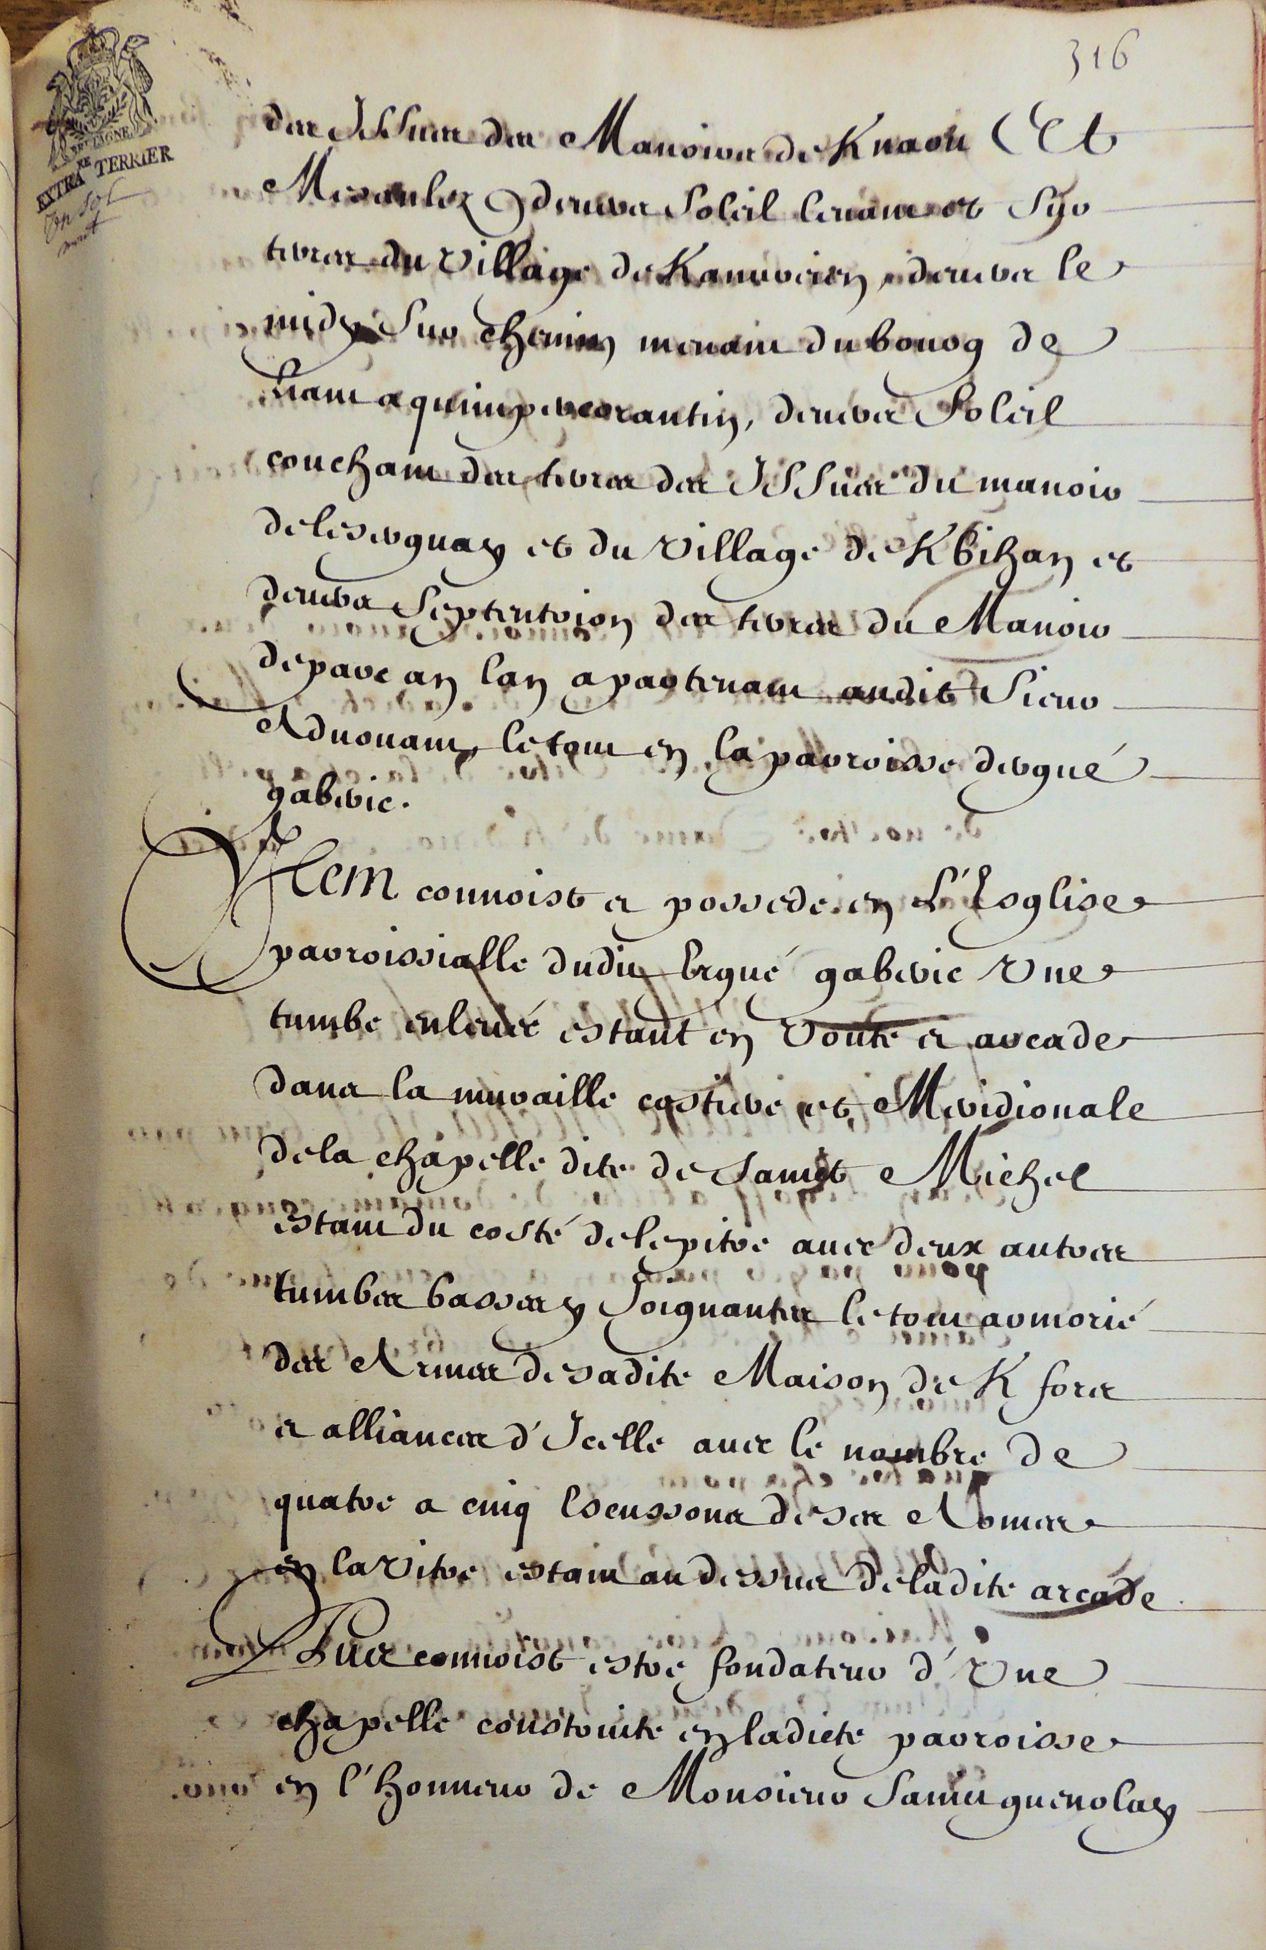 316
BRETAGNE
EXTRA TERRIER
des Issues des Manoirs de Knaou Et
Mesanlez, devers Soleil levant et Sur
terres du Village de Kanveien, devers le
midy Sur Chemin menant du bourg de
a quimpercorantin, devers Soleil
couchant des terres des Issues du manoir
de lesergnay et du Village de Kbihan et
devers Septentrion des terres du Manoir
de parc an lan apartenant audit Sieur
Aduouant, le tout en la parroisse dergué
gaberic.
Item connoist et possede en L'Esglise
parroissialle dudit Ergué gaberic Une
tumbe enlevée estant en Voute et arcade
dans la muraille costiere et Meridionale
de la chapelle dite de Sainct Michel
estant du costé de lepitre avec deux autres
tumbes basses y Joignantes le tout armorié
des Armes de sadite Maison de K fors
et alliances d'Icelle avec le nombre de
quatre a cinq Escussons de ses Armes
en la Vitre estant au dessus de ladite arcade
Plus connoist estre fondateur d'Une
chapelle construite en ladicte parroisse
en l'honneur de Monsieur Saint guenolay